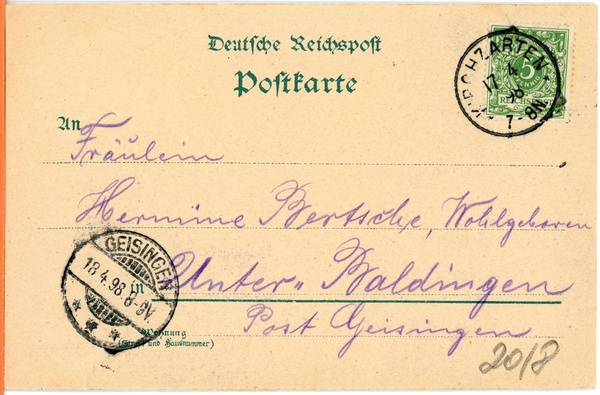 Deutsche Reichspost
Postkarte
KIRCHZARTEN
17 4
98
7-8N.
5
PFENNIG
REICHSPOST
An
Fräulein
Hermine Bertsche, Wohlgeboren
GEISINGEN
18.4.98.8-9V.
in Unter-Baldingen
Post Geisingen
Wohnung
(Straße und Hausnummer)
2018